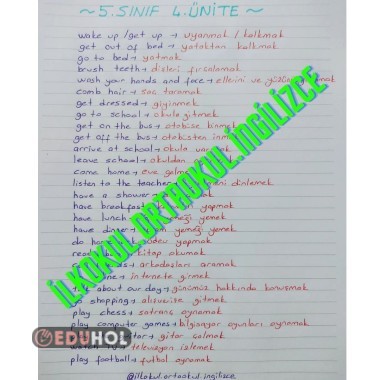 ~5.SINIF 4.ÜNİTE~
wake up /get up → uyanmak / kalkmak
get out of bed → yataktan kalkmak
go to bed → yatmak
brush teeth → dişleri fırçalamak
wash your hands and face → ellerini ve yüzünü
comb hair → saç taramak
get dressed → giyinmek
go to school → okula gitmek
get on the bus → otobüse binmek
get off the bus → otobüsten inmek
arrive at school → okula
leave school → okuldan
come home → eve gelmek
listen to the teacher → dinlemek
have a shower →
have breakfast yapmak
have lunch yemeği yemek
have dinner → yemeği yemek
do ödev yapmak
kitap okumak
arkadaşları aramak
→ internete girmek
about our day → günümüz hakkında konuşmak
shopping → alışverişe gitmek
play chess → satranç oynamak
play computer games → bilgisayar oyunları oynamak
→ gitar çalmak
→ televizyon izlemek
play football → futbol oynamak
@ilkokul.ortaokul.ingilizce
İLKOKUL.ORTAOKUL.İNGİLİZCE
EDUHOL